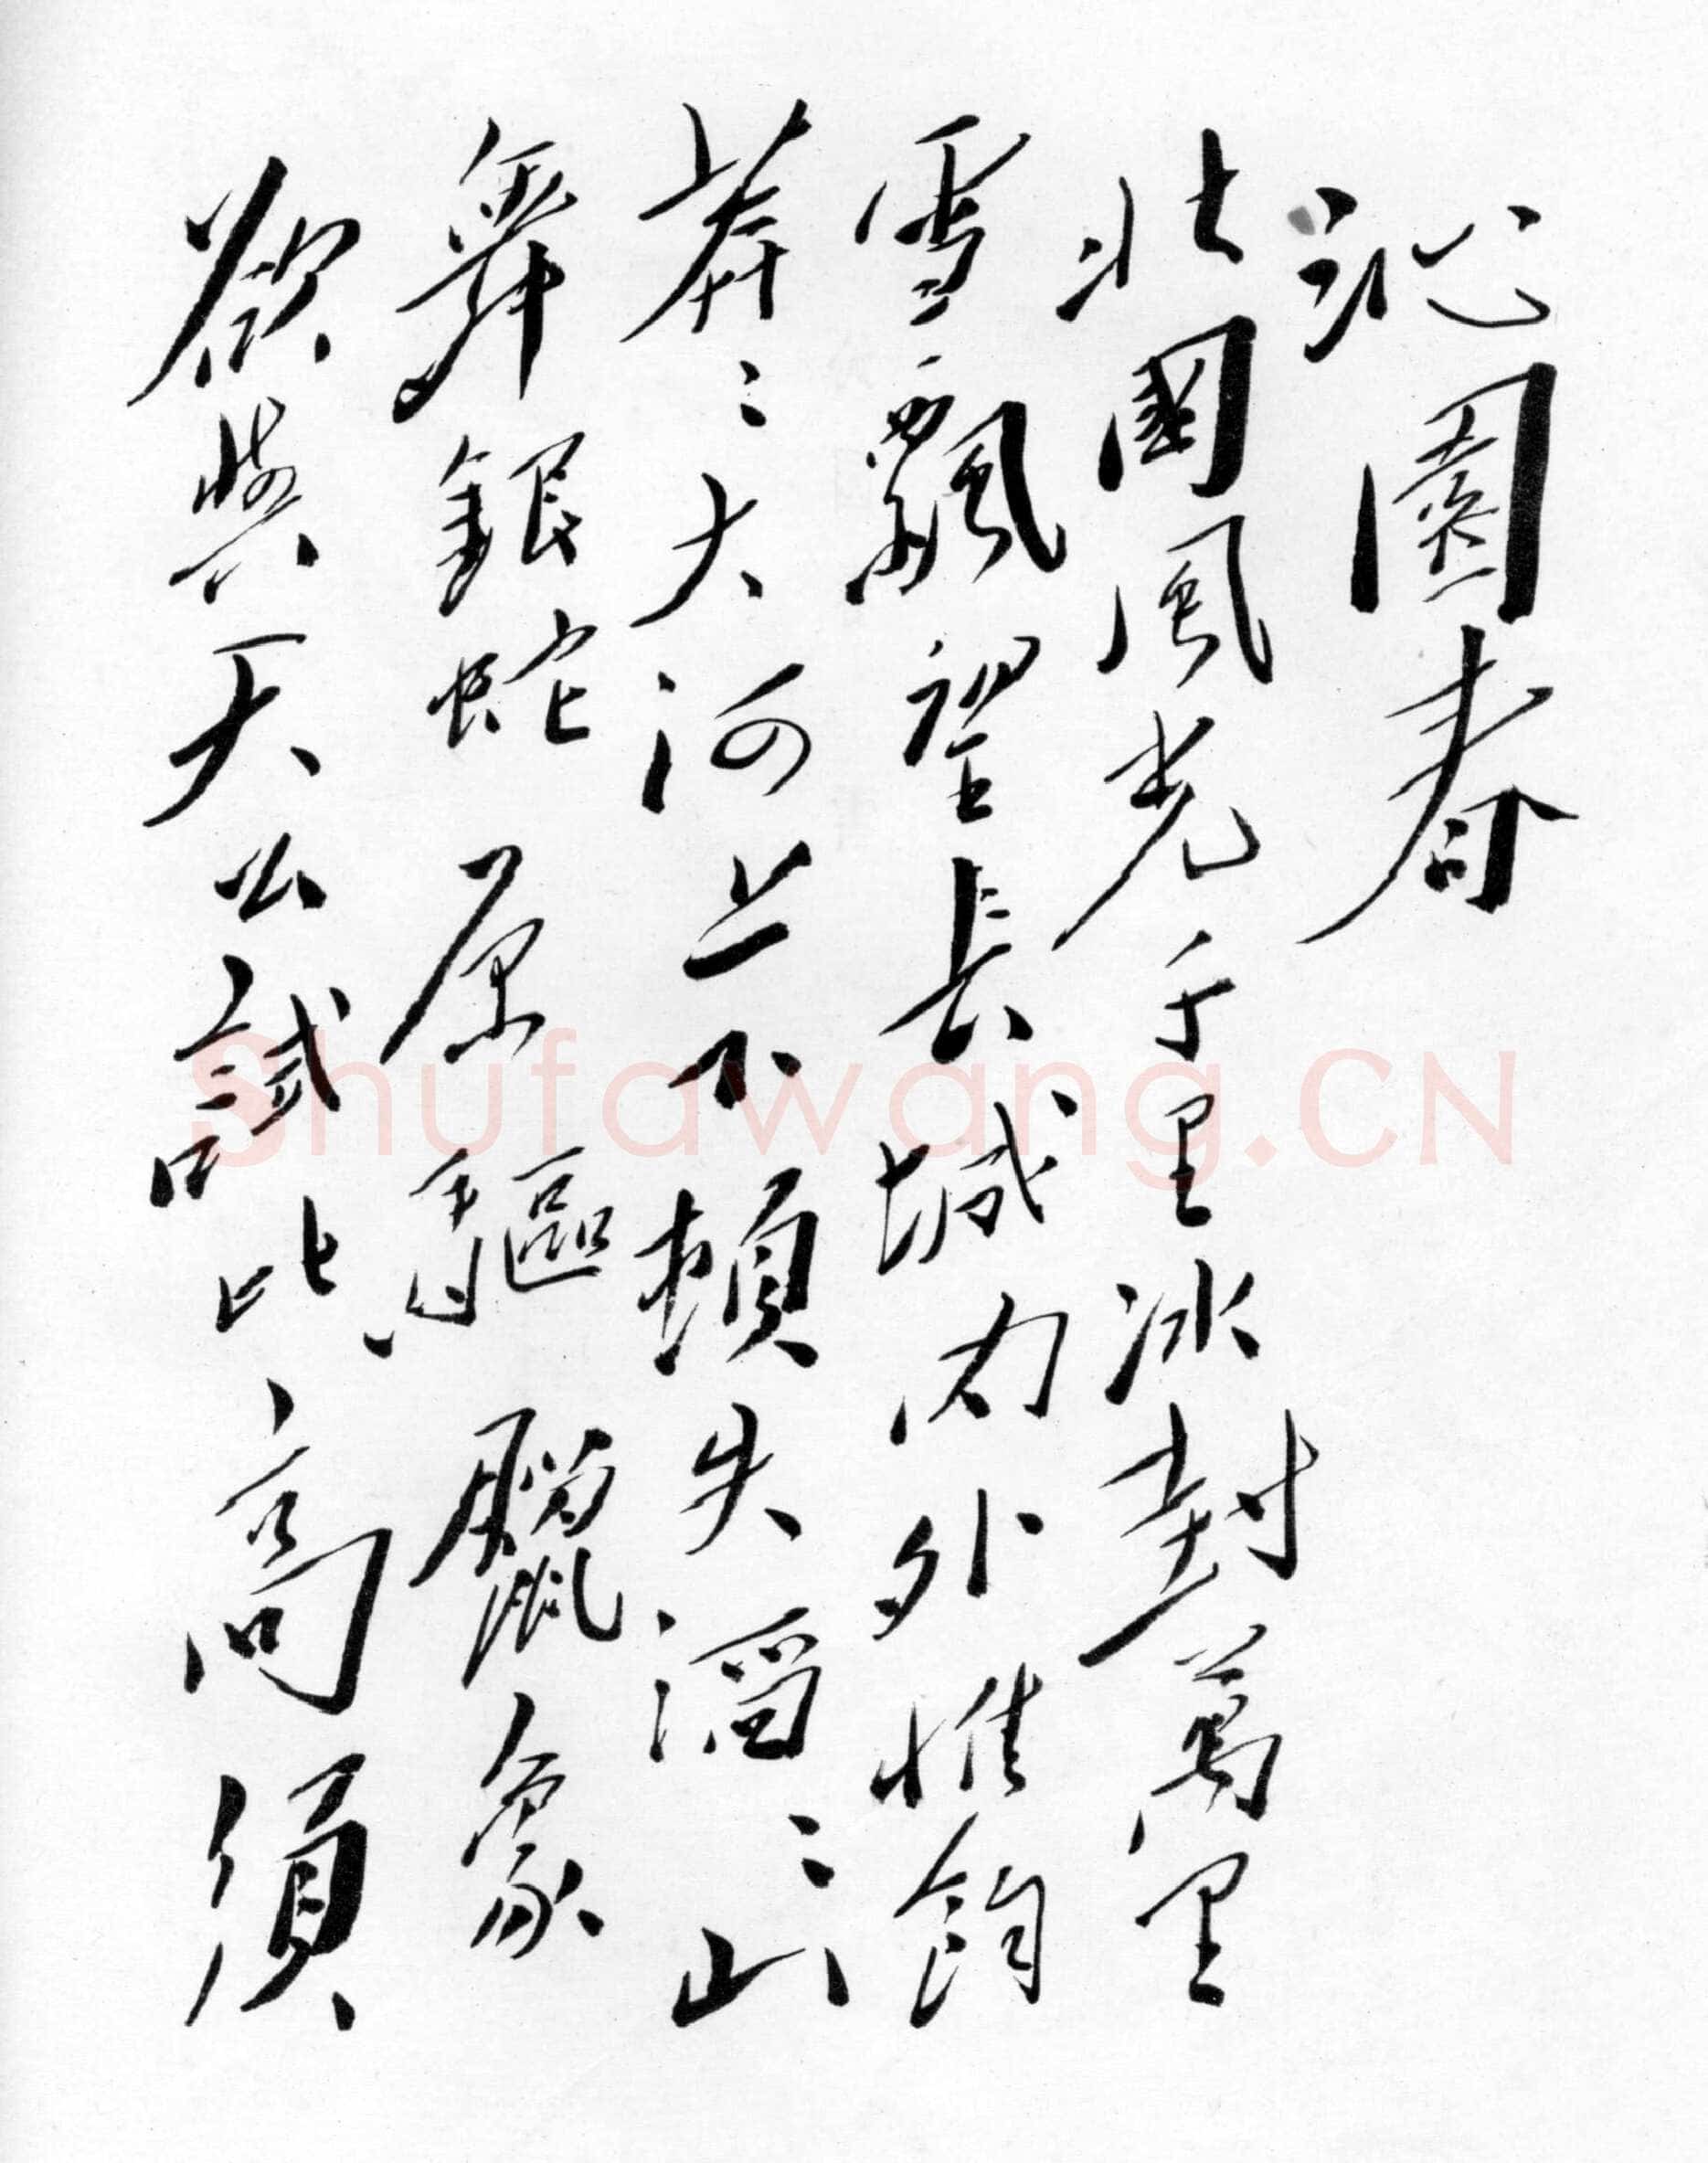 沁園春
北國風光千里冰封萬里
雪飄望長城内外惟餘
莽〻大河上下頓失滔〻山
舞銀蛇原驅臘象
欲與天公試比高須
Shufawang.CN